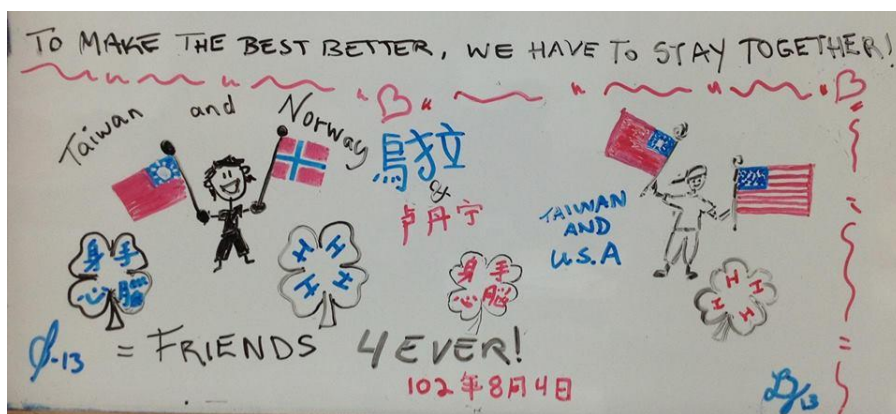 TO MAKE THE BEST BETTER, WE HAVE TO STAY TOGETHER!
Taiwan and Norway
烏拉
&
卢丹宁
TAIWAN
AND
U.S.A
身手
心脳
H H
H H
身手
心脳
H H
H H
= FRIENDS 4EVER!
102年8月4日